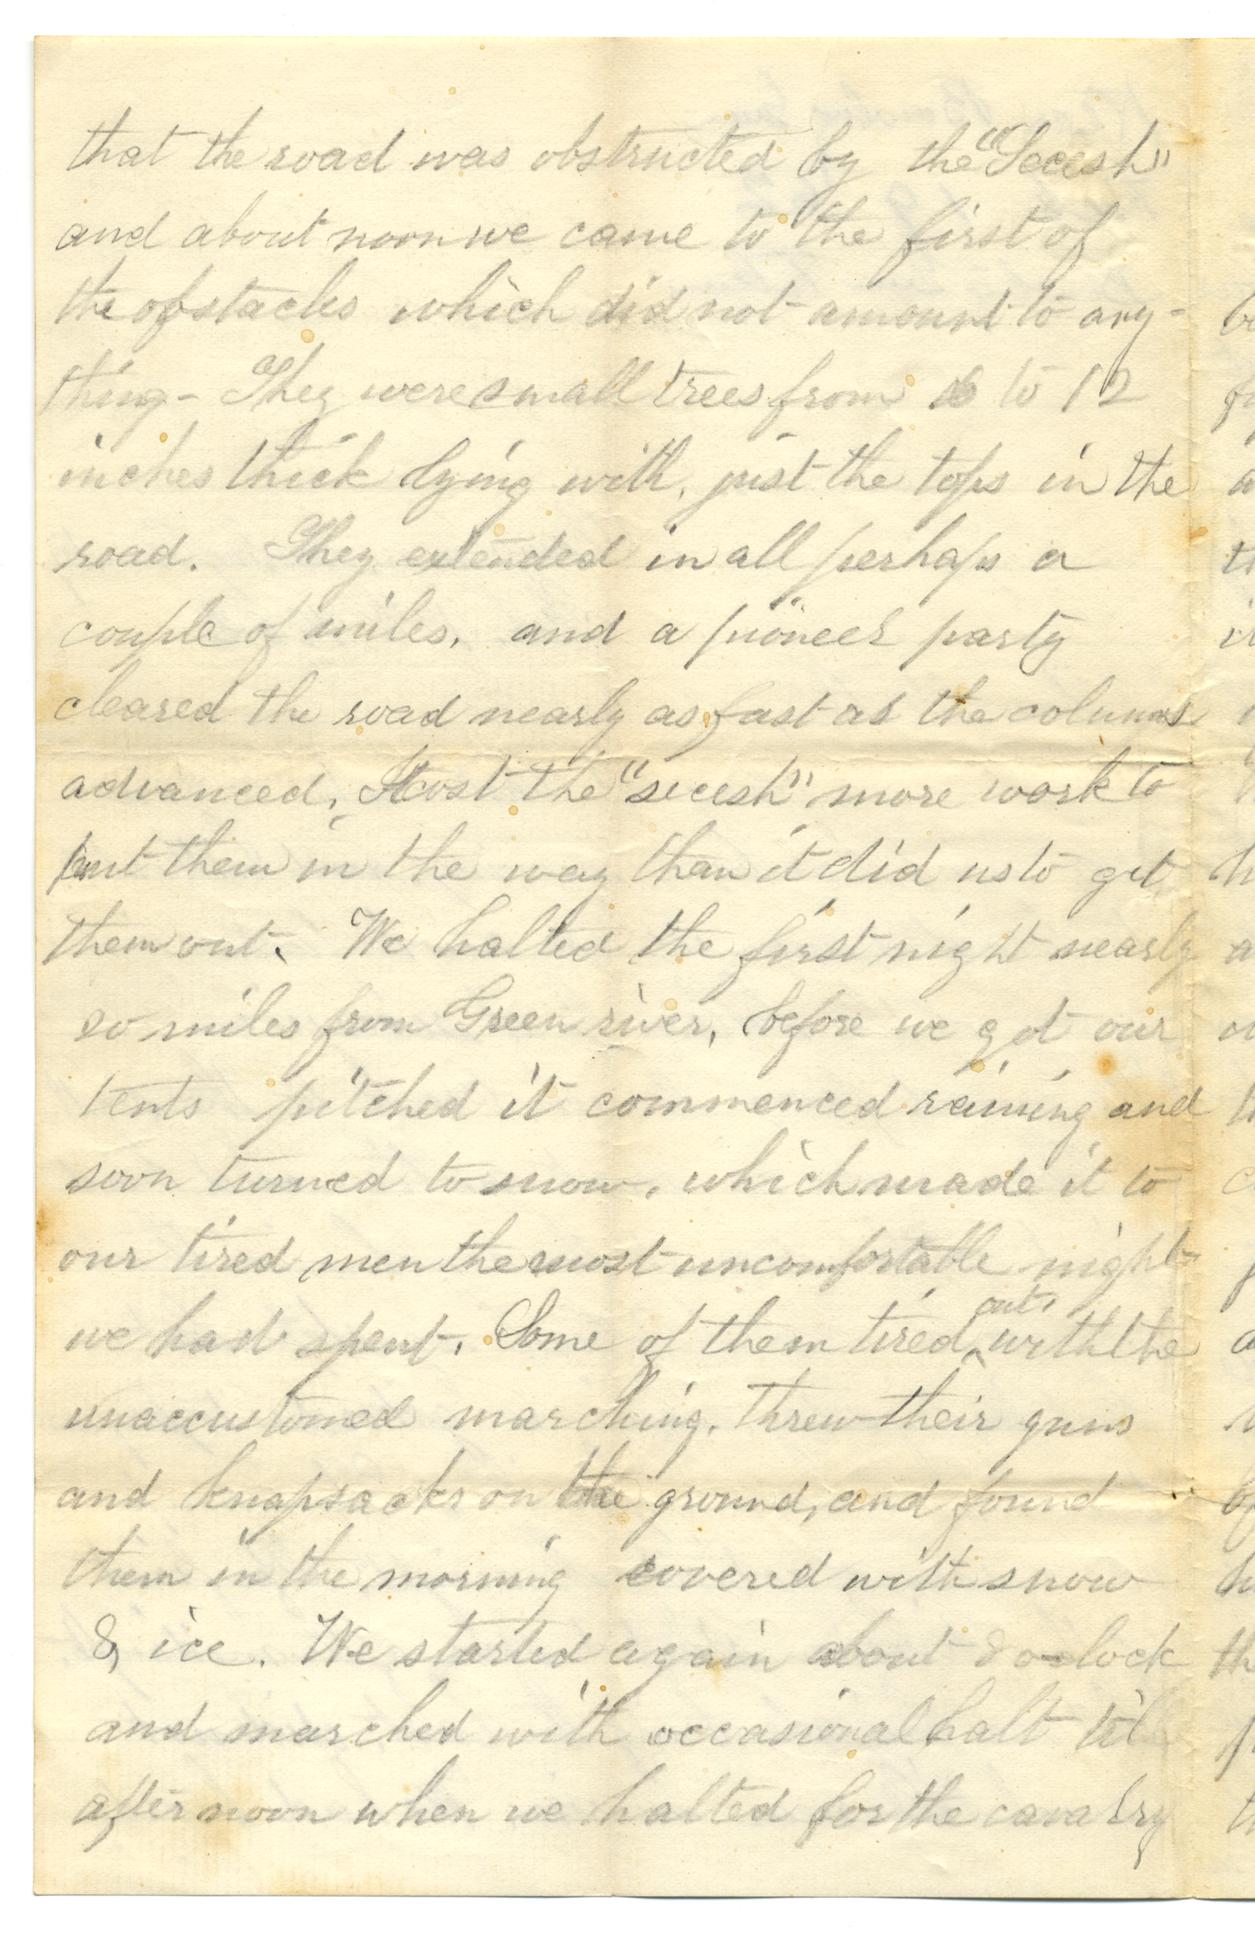 that the road was obstructed by the "Secesh"
and about noon we came to the first of
the obstacles which did not amount to any-
thing - They were small trees from 6 to 12
inches thick lying with, just the tops in the
road. They extended in all perhaps a
couple of miles, and a pioneer party
cleared the road nearly as fast as the columns
advanced, It cost the "secesh" more work to
put them in the way than it did us to get
them out. We halted the first night nearly
20 miles from Green river, before we got our
tents pitched it commenced raining and
soon turned to snow, which made it to
our tired men the most uncomfortable night
we had spent. Some of them tired out, with the
unaccustomed marching, threw their guns
and knapsacks on the ground, and found
them in the morning covered with snow
& ice. We started again about 8 oclock
and marched with occasional halt till
after noon when we halted for the cavalry